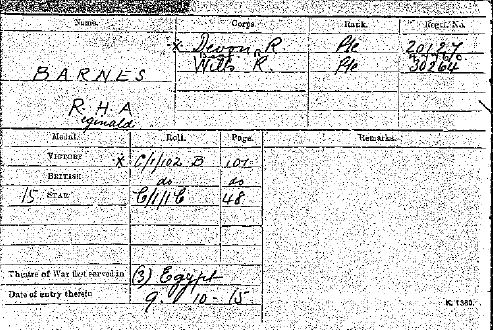 Name. Corps. Rank. Regtl. No.
x Devon. R. Pte 20127
Wilts R. Pte 30264
BARNES
R. H. A
Reginald
Medal. Roll. Page. Remarks.
VICTORY x C/1/102 B 107
BRITISH do do
15 STAR C/1/1 C 48
Theatre of War first served in (3) Egypt
Date of entry therein 9. 10 - 15.
K. 1380.